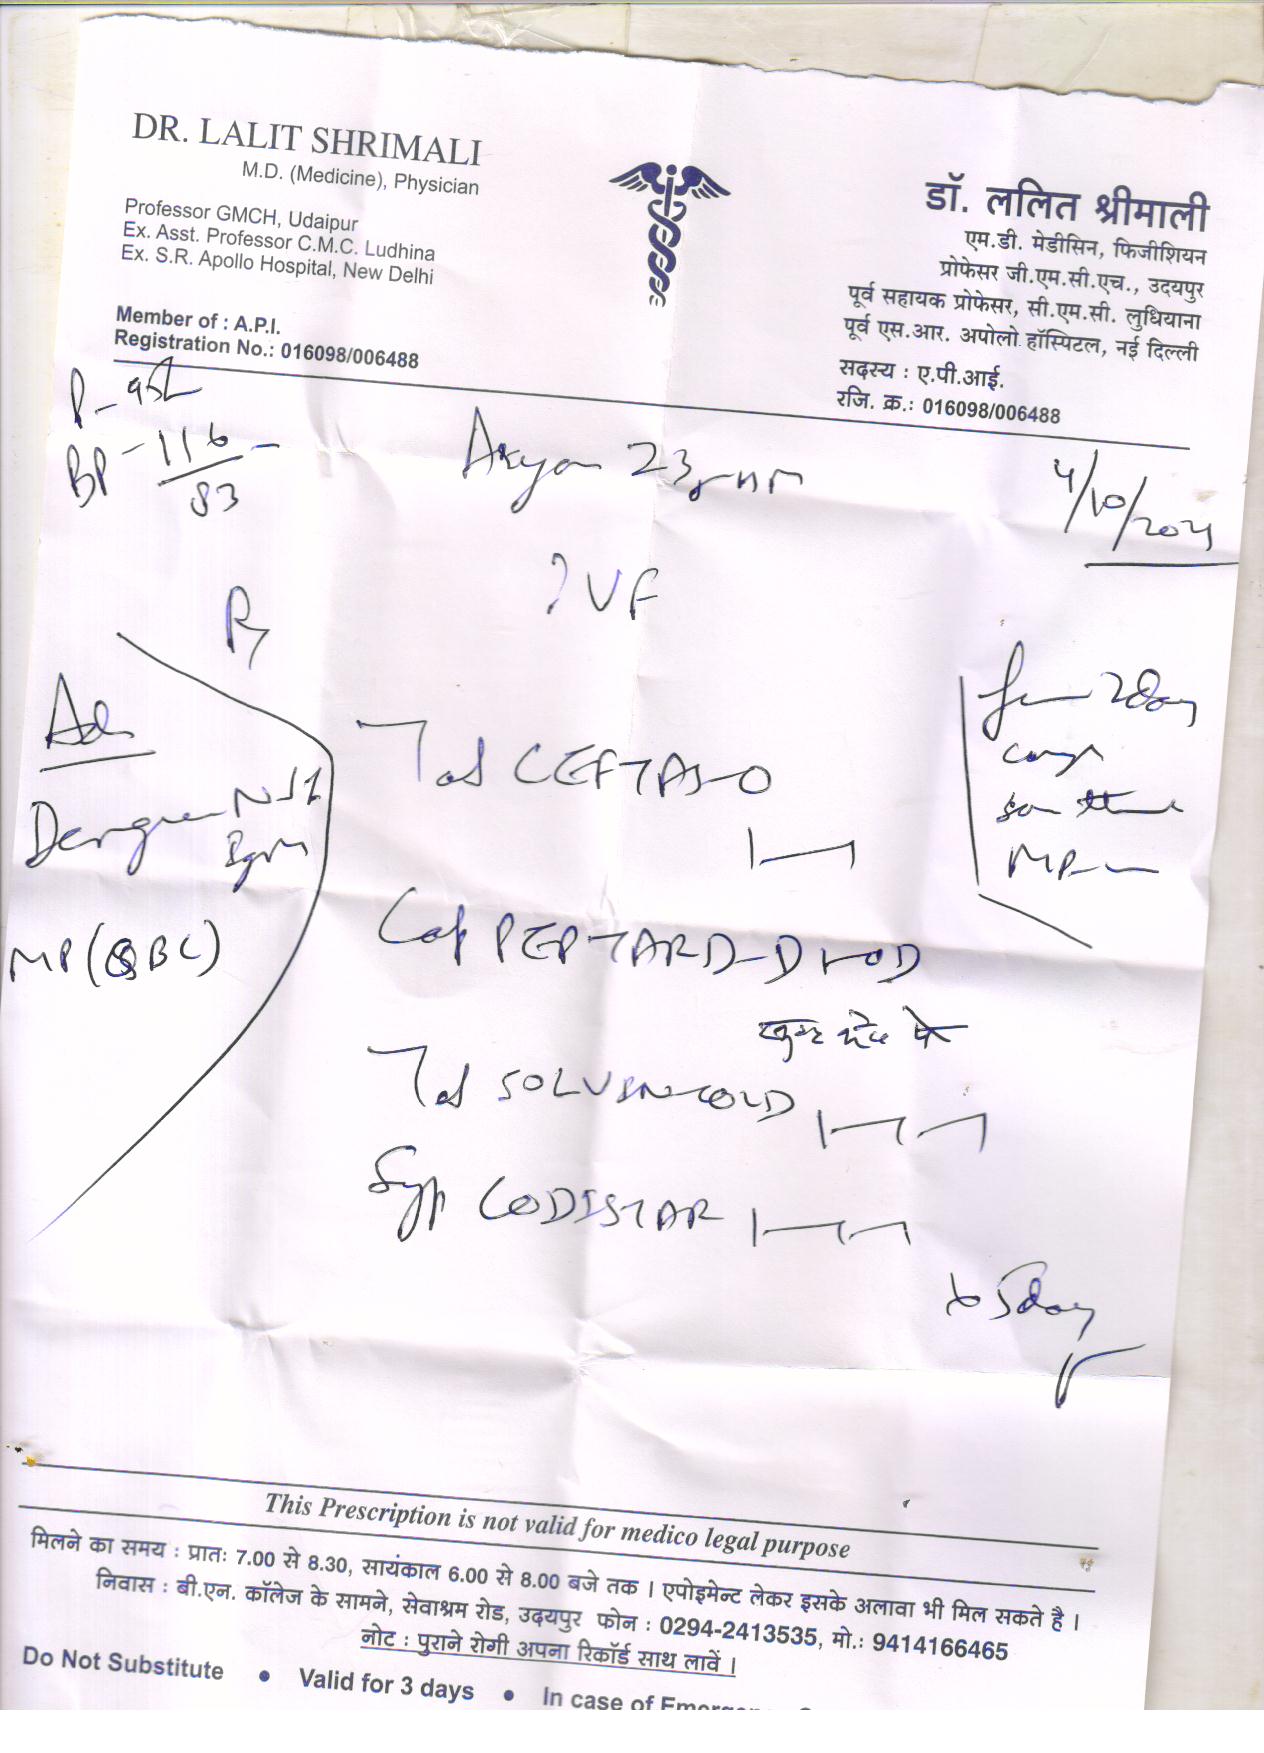 DR. LALIT SHRIMALI
M.D. (Medicine), Physician
Professor GMCH, Udaipur
Ex. Asst. Professor C.M.C. Ludhina
Ex. S.R. Apollo Hospital, New Delhi
Member of : A.P.I.
Registration No.: 016098/006488
डॉ. ललित श्रीमाली
एम.डी. मेडीसिन, फिजीशियन
प्रोफेसर जी.एम.सी.एच., उदयपुर
पूर्व सहायक प्रोफेसर, सी.एम.सी. लुधियाना
पूर्व एस.आर. अपोलो हॉस्पिटल, नई दिल्ली
सदस्य : ए.पी.आई.
रजि. क्र.: 016098/006488
P-
BP- 116
83
23
4/10/2021
? VF
2day
MP
Adv
Dengue NS1
IgM
MP (QBC)
Tab CEFTAS-O
Cap PEPTARD-D 1-OD
Tab SOLVIN COLD
Syp CODISTAR
x 5day
This Prescription is not valid for medico legal purpose
मिलने का समय : प्रातः 7.00 से 8.30, सायंकाल 6.00 से 8.00 बजे तक । एपोइमेन्ट लेकर इसके अलावा भी मिल सकते है ।
निवास : बी.एन. कॉलेज के सामने, सेवाश्रम रोड, उदयपुर फोन : 0294-2413535, मो.: 9414166465
नोट : पुराने रोगी अपना रिकॉर्ड साथ लावें ।
Do Not Substitute • Valid for 3 days • In case of